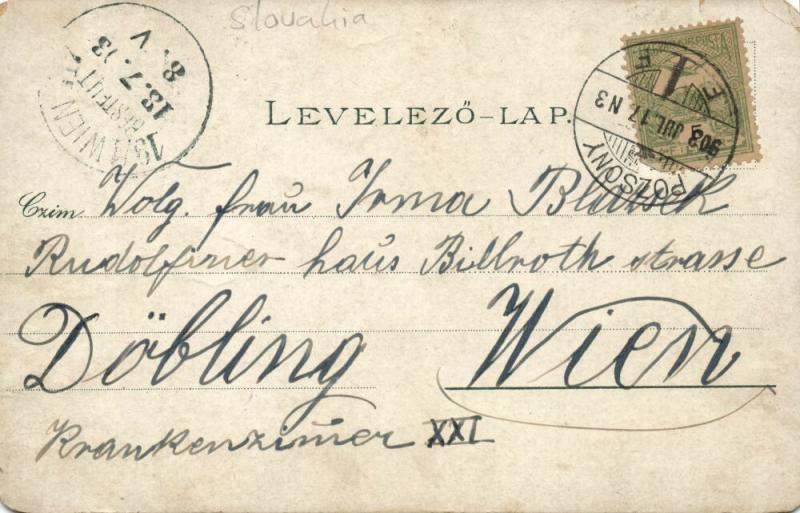 Slovakia
LEVELEZŐ-LAP.
19/1 WIEN
BESTELLT
13. 7. 03
8. V
POZSONY
903 JUL. 17. N3
Czim. Wolg. frau Irma
Rudolfiner haus Billroth strasse
Döbling Wien
Krankenzimer XXI